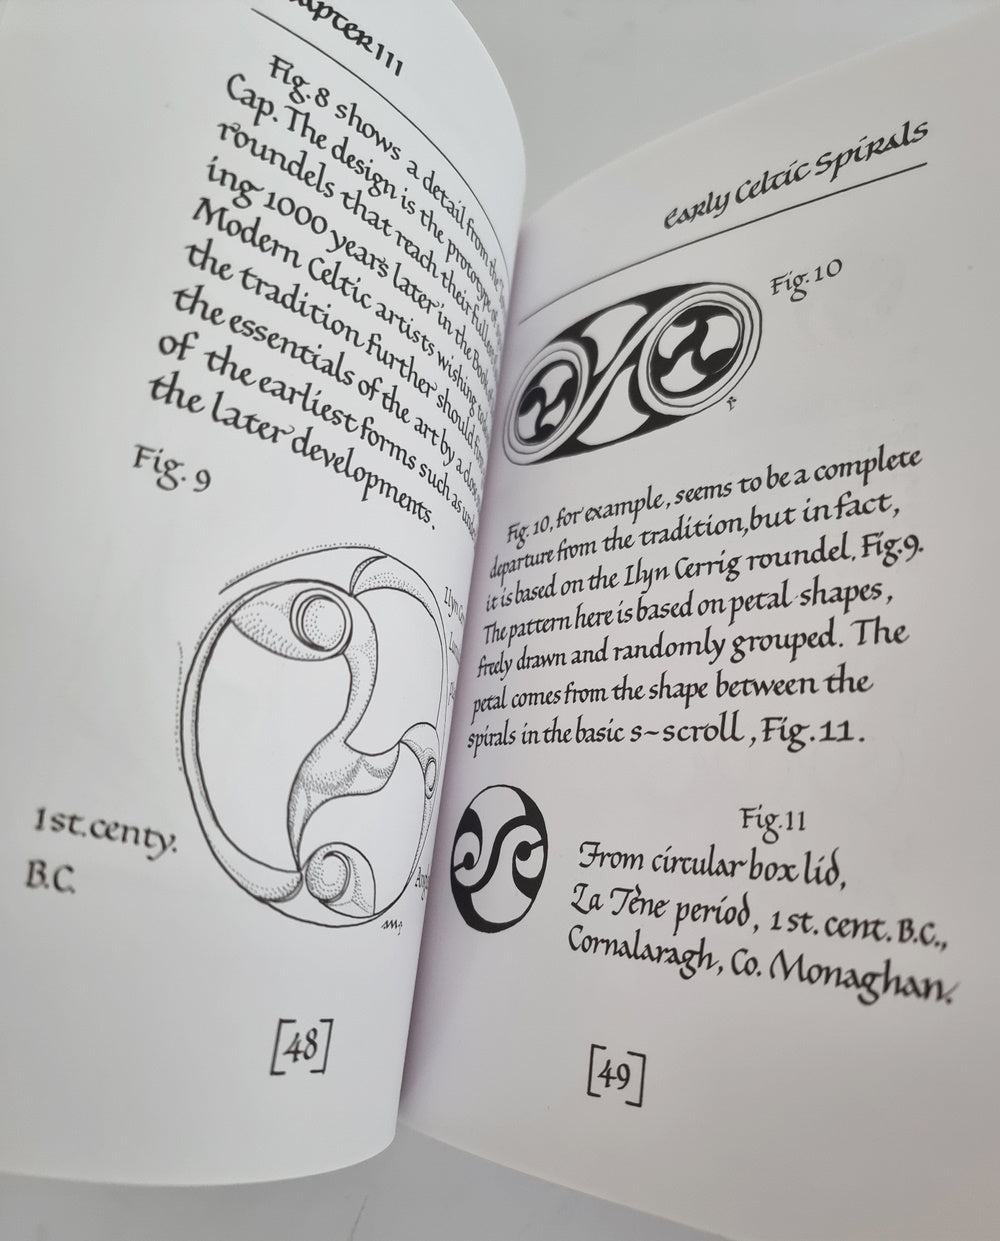 Chapter III
Fig. 8 shows a detail from the
Cap. The design is the prototype of
roundels that reach their full
ing 1000 years later in the Book of
Modern Celtic artists wishing to
the tradition further should
the essentials of the art by a close
of the earliest forms such as
the later developments.
Fig. 9
Llyn
1st. centy.
B.C.
[48]
Early Celtic Spirals
Fig. 10
Fig. 10, for example, seems to be a complete
departure from the tradition, but in fact,
it is based on the Llyn Cerrig roundel, Fig. 9.
The pattern here is based on petal shapes,
freely drawn and randomly grouped. The
petal comes from the shape between the
spirals in the basic s~scroll, Fig. 11.
Fig. 11
From circular box lid,
La Tène period, 1st. cent. B.C.,
Cornalaragh, Co. Monaghan.
[49]